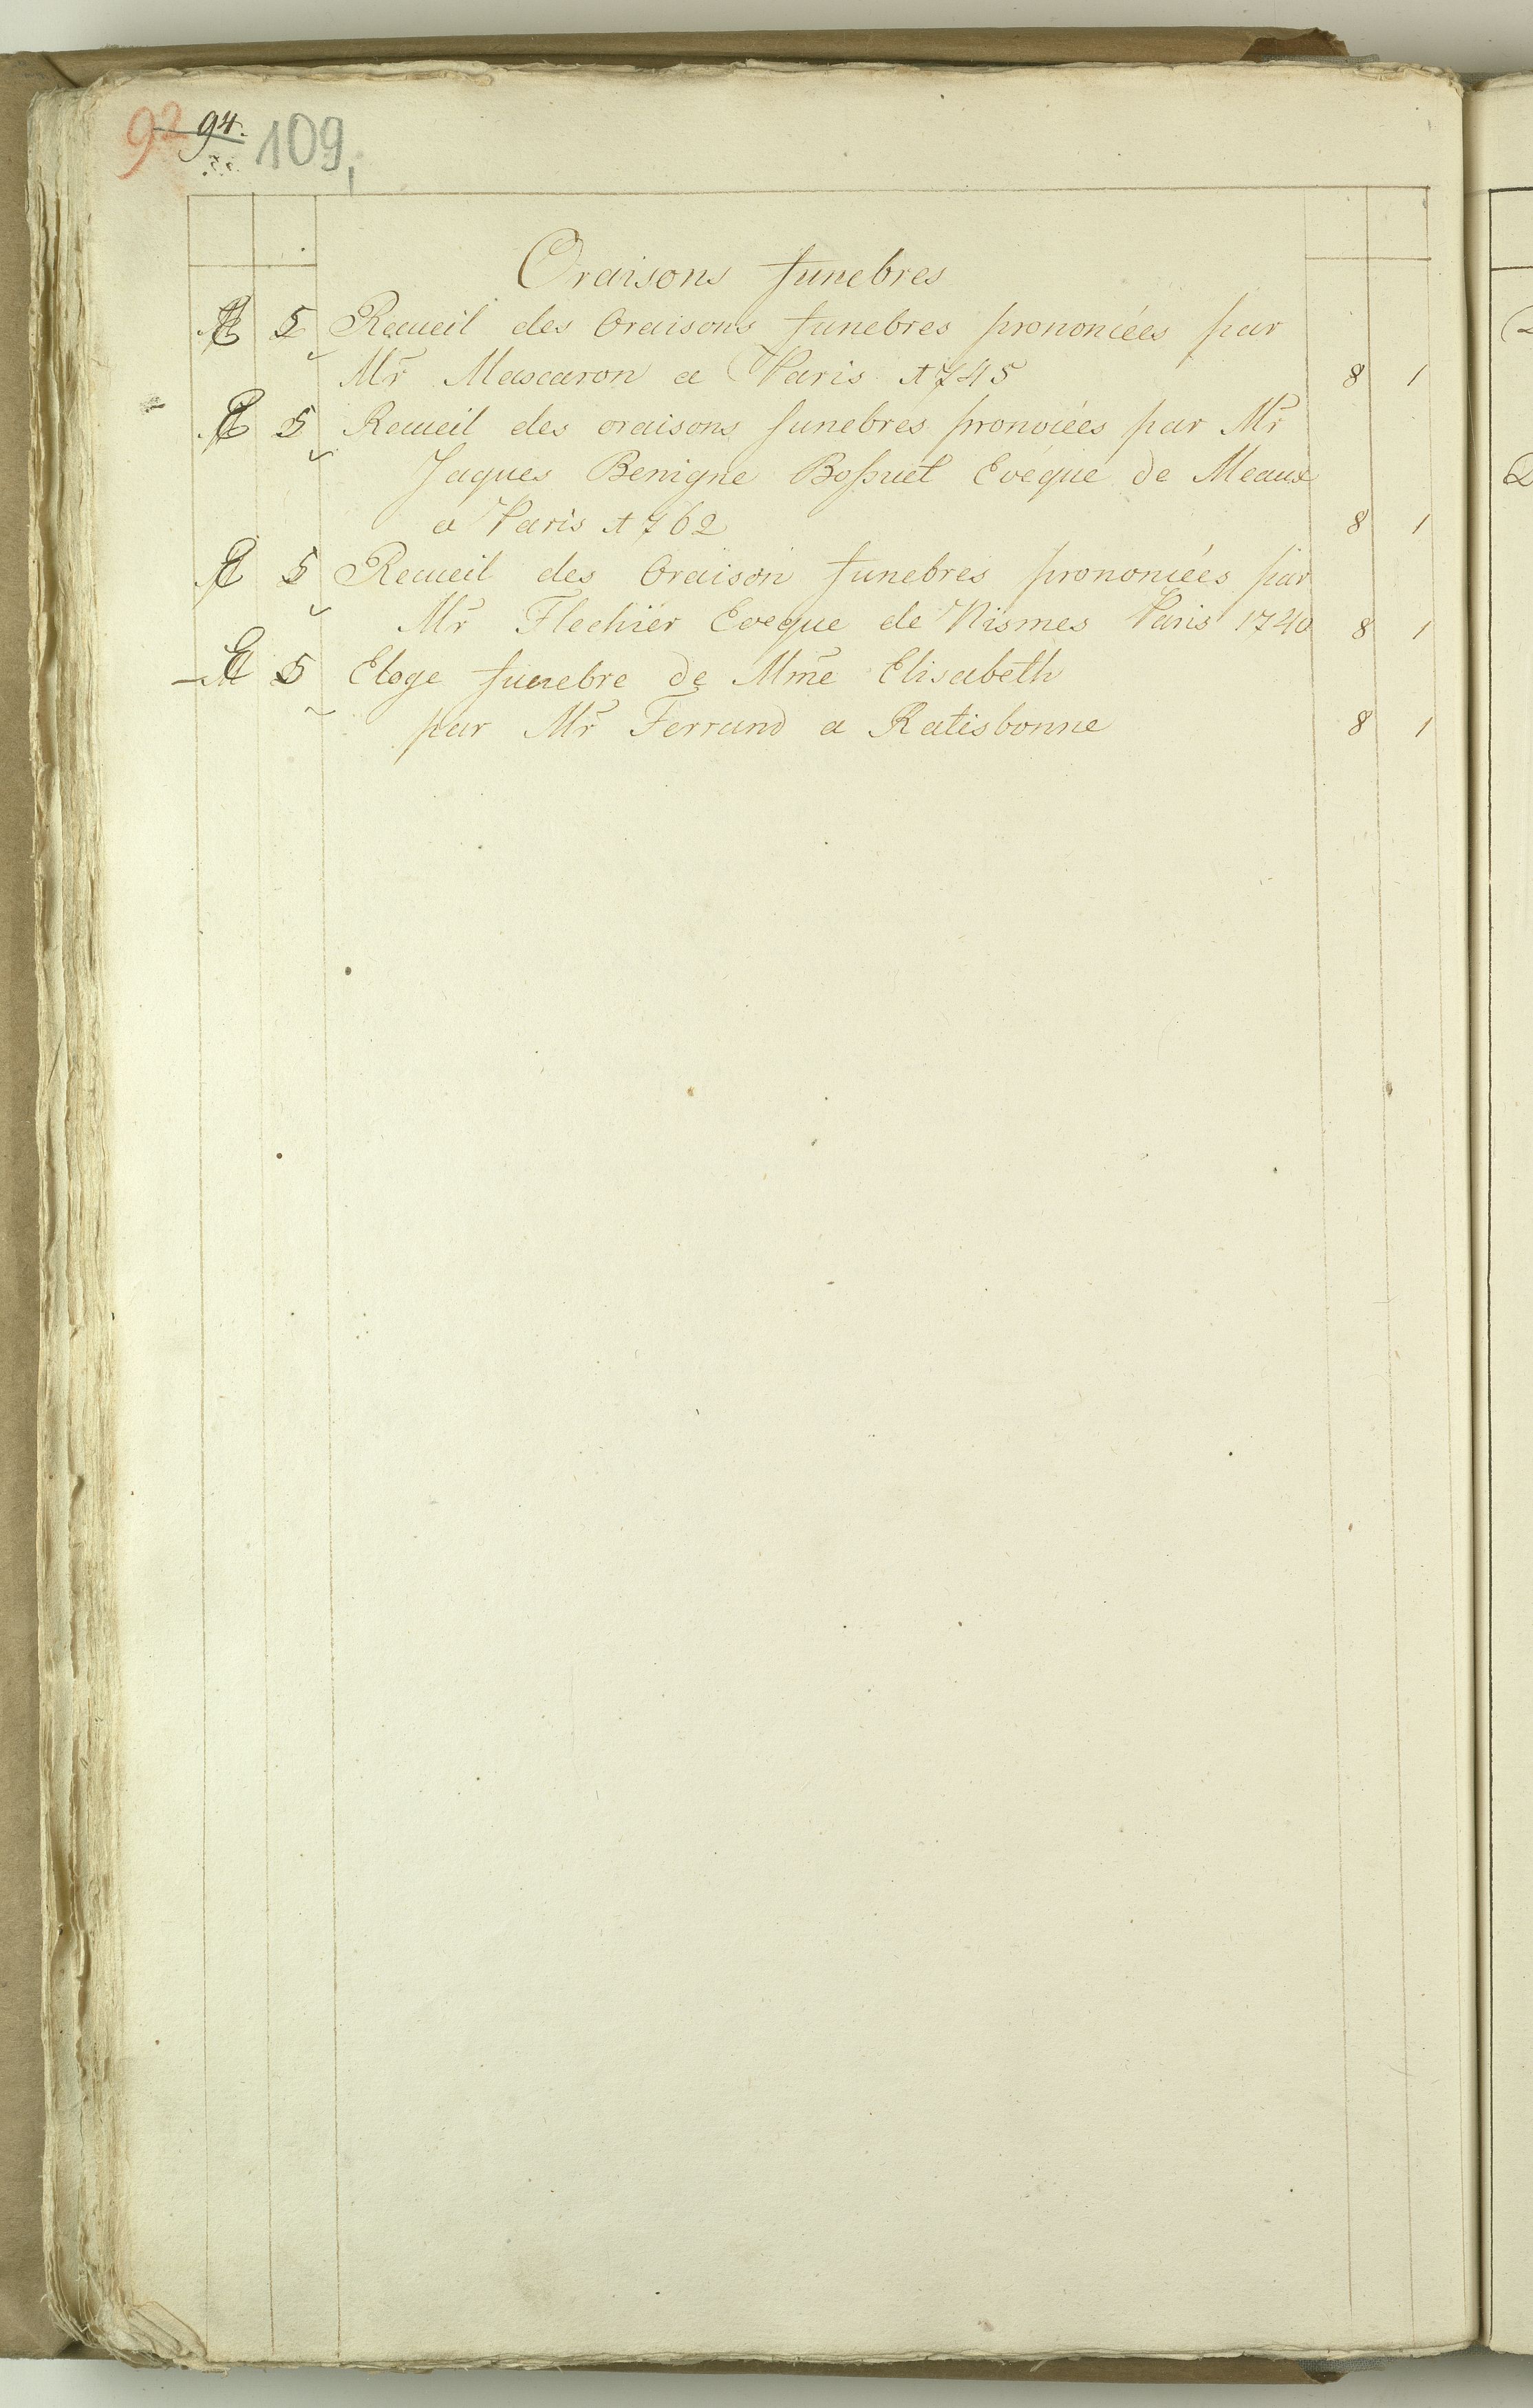 92 94. 109,
Oraisons funebres
5 Recueil des Oraisons funebres prononcées par
Mr Mascaron a Paris 1745 8 1
5 Recueil des oraisons funebres pronoiées par Mr
Jaques Benigne Boſsuet Evéque de Meaux
a Paris 1762 8 1
5 Recueil des Oraison funebres prononcées par
Mr Flechier Eveque de Nismes Paris 1740 8 1
5 Eloge funebre de Mme Elisabeth
par Mr Ferrand a Ratisbonne 8 1